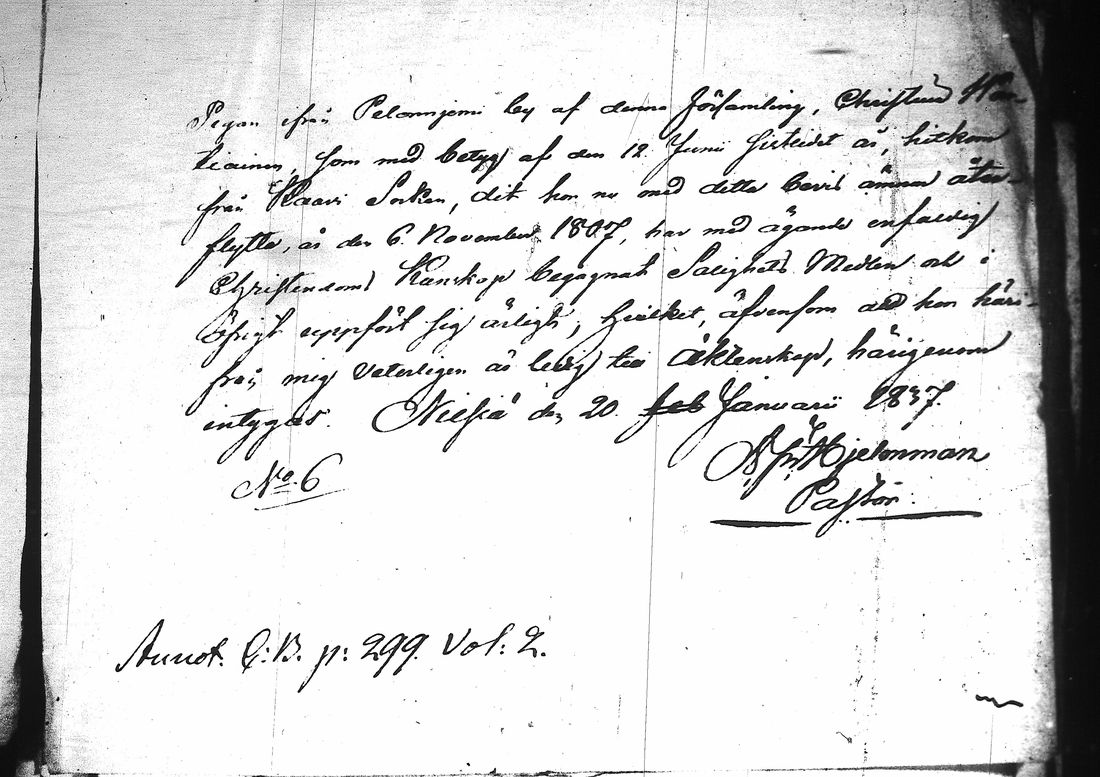 Pigan ifrån Pelonniemi by af denna Församling, Christina Har-
tiainen, som med betyg af den 12. Junii sistledet år, hitkom
från Kaavi Socken, dit hon nu med detta bevis ämnar åter-
flytta, är den 6. November 1807, har med ägande enfaldig
Christendoms Kunskap begagnat Salighets Medlen och i
öfrigt uppfört sig ärligt; hvilket, äfvensom att hon häri-
från mig veterligen är ledig till äktenskap, härigenom
intygas. Nilsiä den 20. feb Januarii 1837.
Hjelmman
Pastor.
No. 6
Annot. C:B. p: 299. Vol: 2.